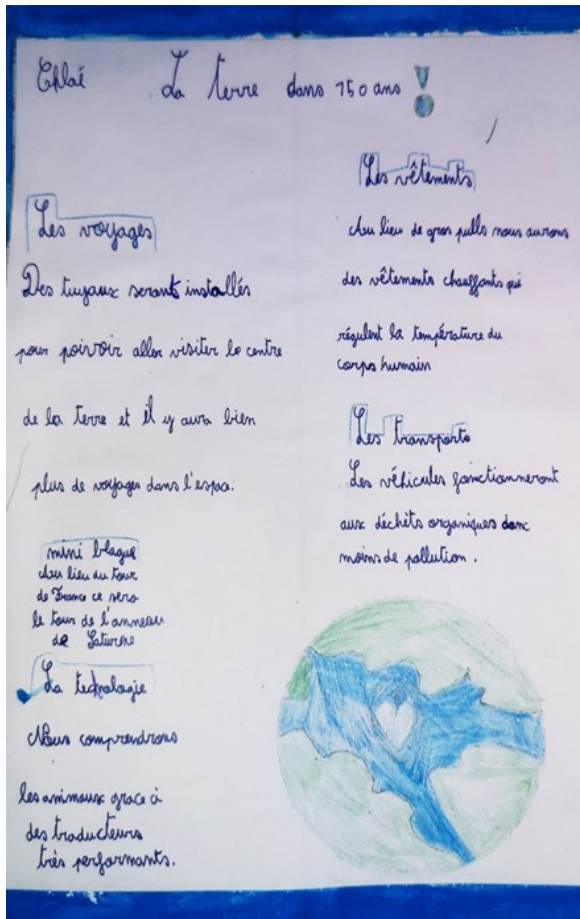 Chloé
La terre dans 150 ans
Les voyages
Des tuyaux seront installés
pour poivoir aller visiter le centre
de la terre et il y aura bien
plus de voyages dans l'espace.
mini blague
Au lieu du tour
de France ce sera
le tour de l'anneau
de Saturne
La technologie
Nous comprendrons
les animaux grace à
des traducteurs
très performants.
Les vêtements
Au lieu de gros pulls nous aurons
des vêtements chauffants qui
régulent la température du
corps humain
Les transports
Les véhicules fonctionneront
aux déchets organiques donc
moins de pollution.